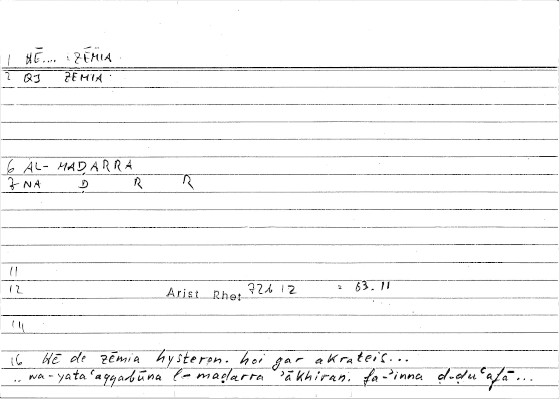 1 HĒ.... ZĒMIA
2 QJ ZĒMIA
6 AL- MAḌARRA
7 NA Ḍ R R
11
12 Arist Rhet 72b 12 = 63.11
14
16 HĒ de zēmia hysteron. hoi gar akrateis...
.. wa-yata‘aqqabūna l-maḍarra ’ākhiran. fa-’inna ḍ-ḍu‘afā...